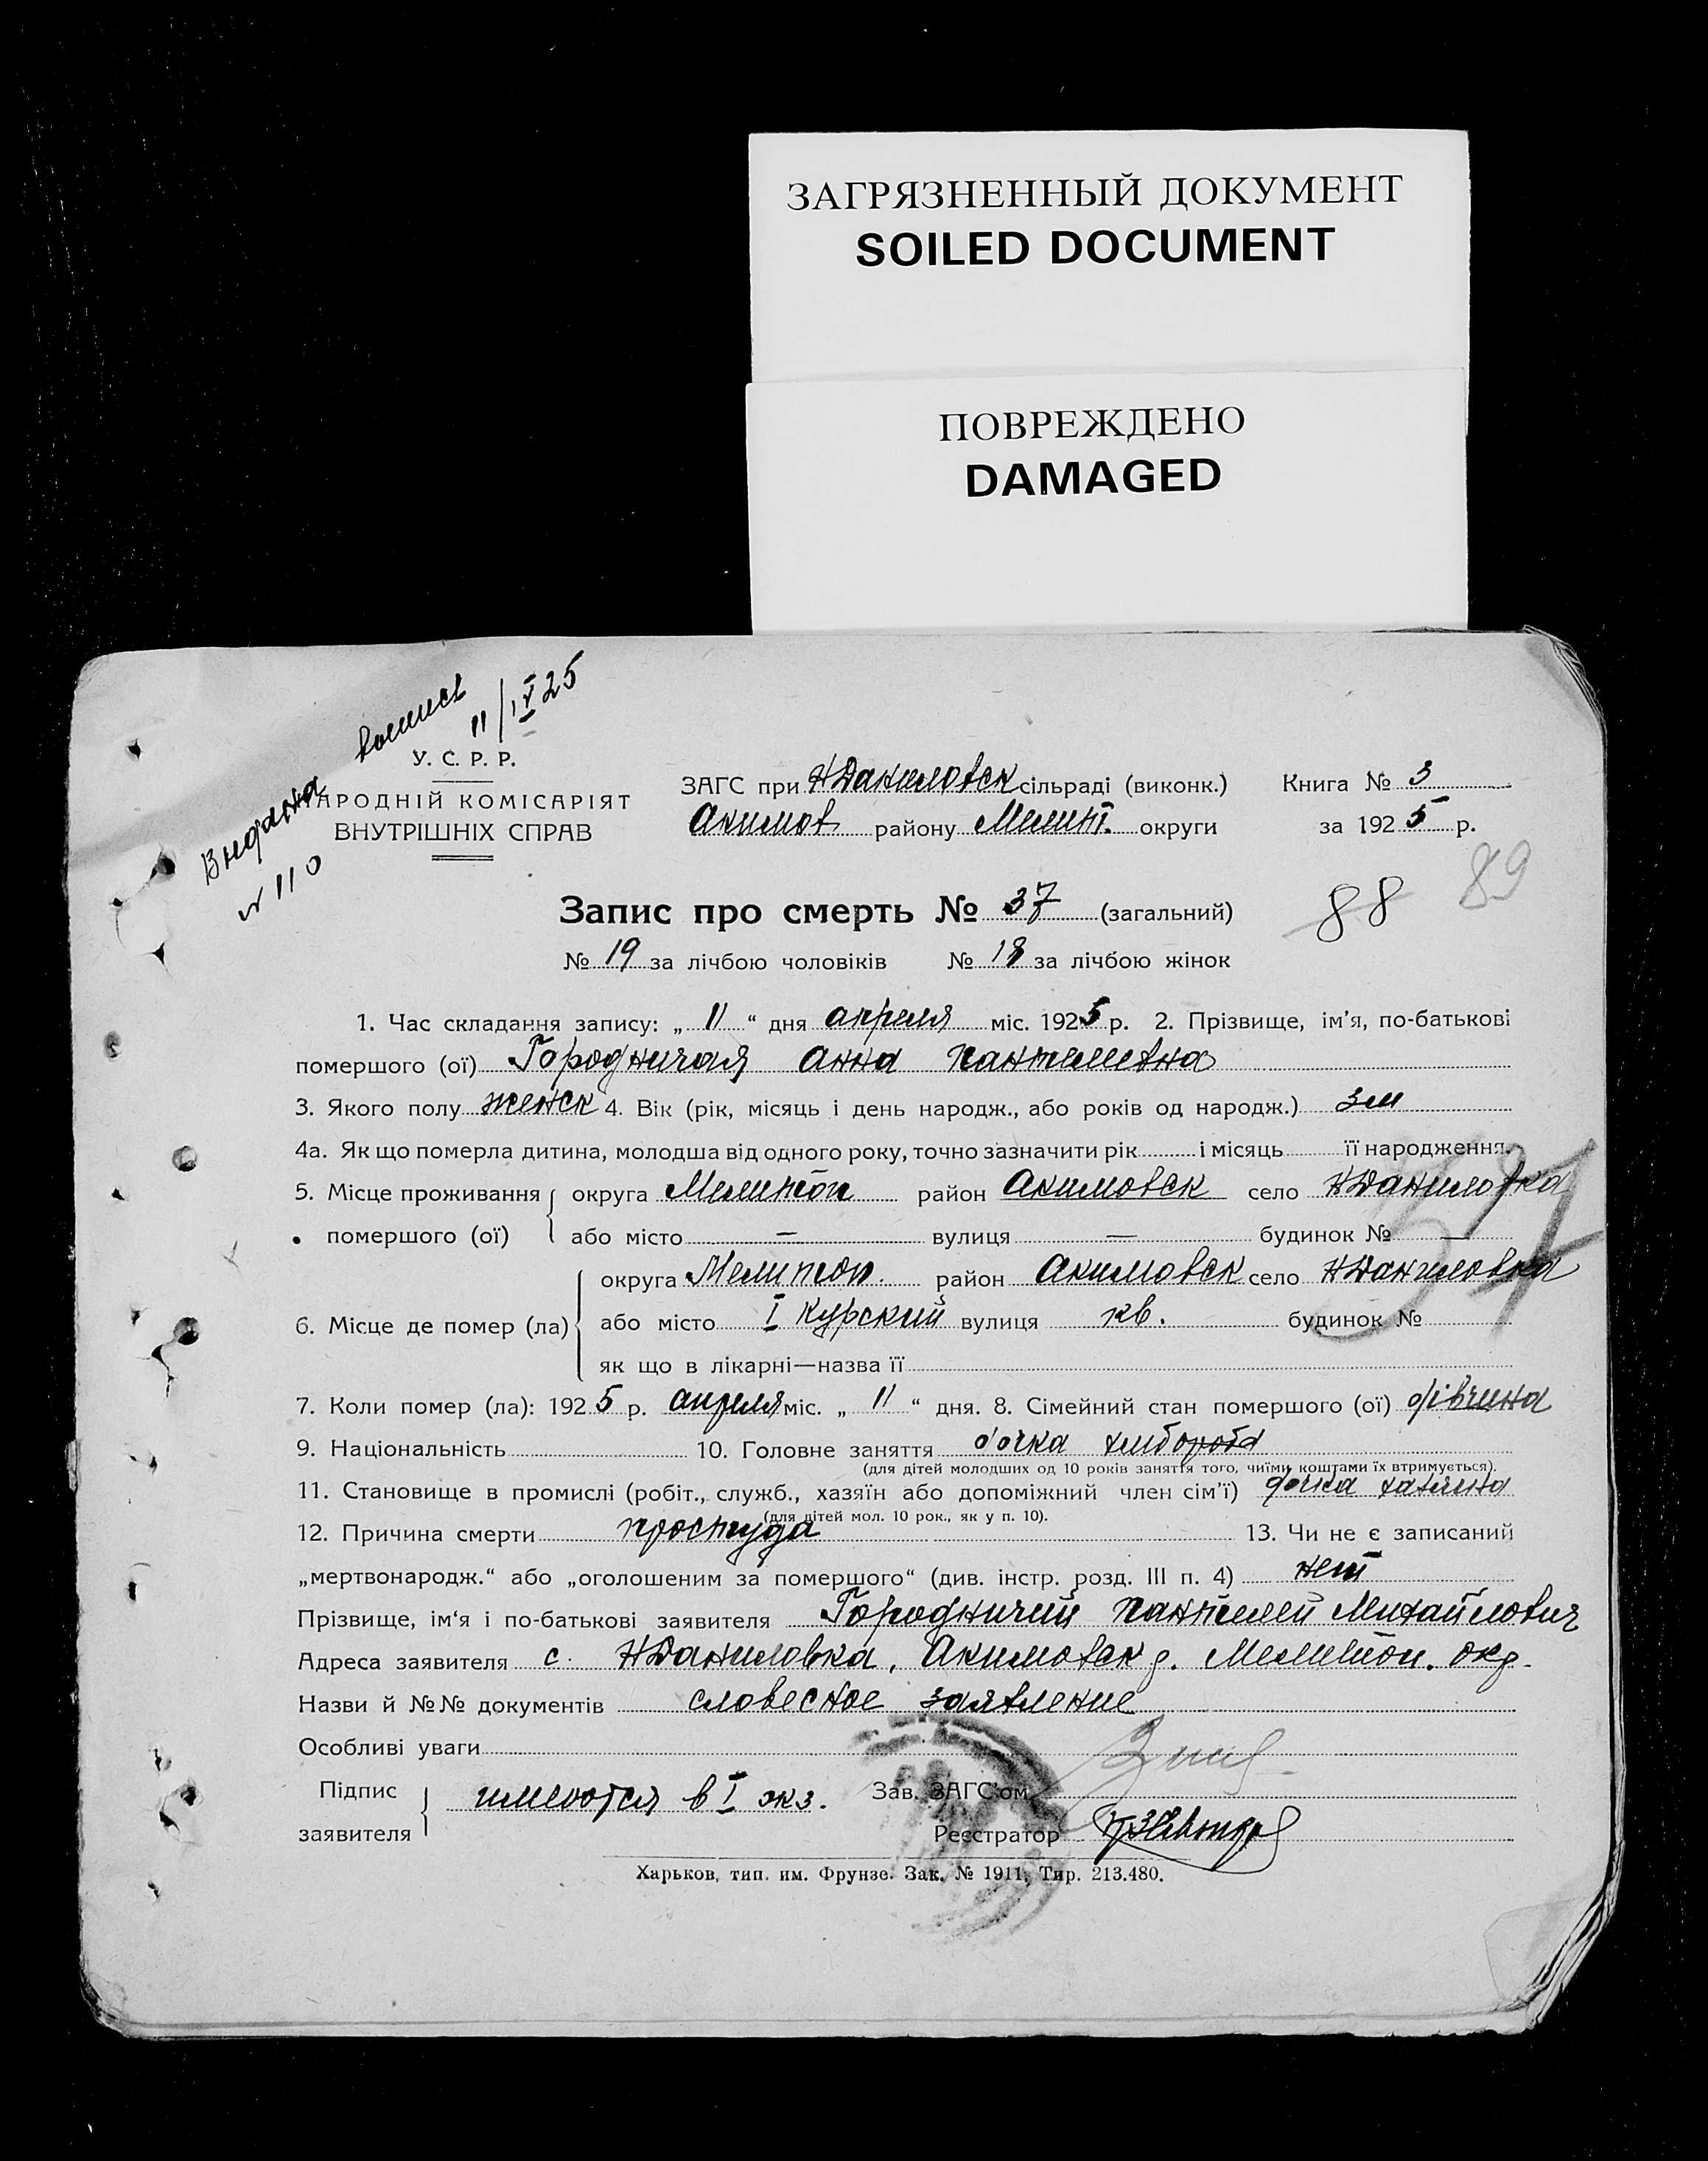 ЗАГРЯЗНЕННЫЙ ДОКУМЕНТ
SOILED DOCUMENT
ПОВРЕЖДЕНО
DAMAGED
11/IV 25
Видана
№ 110
У. С. Р. Р.
НАРОДНІЙ КОМІСАРІЯТ
ВНУТРІШНІХ СПРАВ
ЗАГС при НДаниловск сільраді (виконк.) Книга № 3
Акимов району Мелит. округи за 1925 р.
88 89
Запис про смерть № 37 (загальний)
№ 19 за лічбою чоловіків № 18 за лічбою жінок
1. Час складання запису: „ 11 “ дня апреля міс. 1925 р. 2. Прізвище, ім’я, по-батькові
помершого (ої) Городничая Анна Пантелиевна
3. Якого полу женск 4. Вік (рік, місяць і день народж., або років од народж.) 3м
4а. Як що померла дитина, молодша від одного року, точно зазначити рік і місяць її народження.
5. Місце проживання округа Мелитоп район Акимовск село НДаниловка
помершого (ої) або місто — вулиця — будинок № —
округа Мелитоп. район Акимовск село НДаниловка
6. Місце де помер (ла) або місто I Курский вулиця кв. будинок №
як що в лікарні—назва її
7. Коли помер (ла): 1925 р. апреля міс. „ 11 “ дня. 8. Сімейний стан помершого (ої) дівчина
9. Національність 10. Головне заняття дочка хлібороба
(для дітей молодших од 10 років заняття того, чиїми коштами їх втримується).
11. Становище в промислі (робіт., служб., хазяїн або допоміжний член сім’ї) дочка хазяина
(для дітей мол. 10 рок., як у п. 10).
12. Причина смерти простуда 13. Чи не є записаний
„мертвонародж.“ або „оголошеним за помершого“ (див. інстр. розд. III п. 4) нет
Прізвище, ім‘я і по-батькові заявителя Городничий Пантелей Михайлович
Адреса заявителя с. НДаниловка, Акимовск р. Мелитоп. окр.
Назви й №№ документів словесное заявление
Особливі уваги
Підпис имеются в I экз. Зав. ЗАГС’ом
заявителя Реєстратор
Харьков, тип. им. Фрунзе. Зак. № 1911, Тир. 213.480.